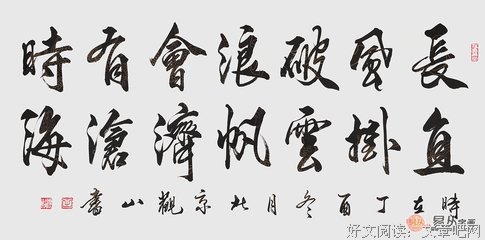 長風破浪會有時
直掛雲帆濟滄海
時在丁酉冬月北京觀山書
好文阅读：文章吧网